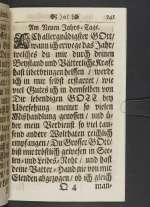 ( 247 )
Am Neuen Jahrs-Tage.
ACh allergnädigster GOtt/
wann ich erwege das Jahr/
welches du mir durch deinen
Beystand und Vätterliche Krafft
hast überbringen helffen / werde
ich in mir selbst erstarret / wie
viel Gutes ich in demselben von
Dir lebendigen GOTT bey
Übersehung meiner so vielen
Mißhandlung genossen / und ü-
ber mein Verdienst so viel tau-
send andere Wolthaten reichlich
empfangen / Du Grosser GOtt /
bist mir tröstlich gewesen in See-
len- und Leibes-Noht / und hast
deine Vatter-Hand nie von mir
Elenden abgezogen / ob ich gleich
Q 4 man-